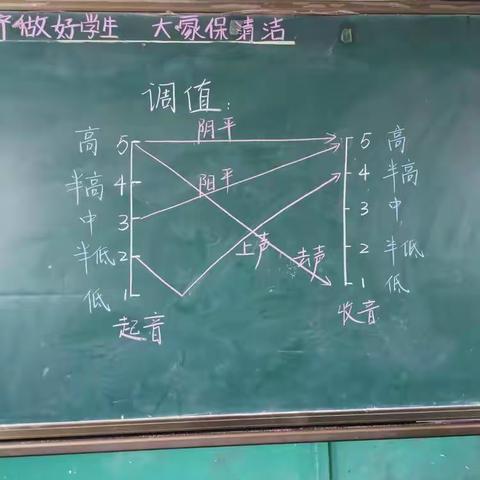 齐做好学生 大家保清洁
调值：
阴平
高 5 5 高
半高 4 阳平 4 半高
中 3 3 中
半低 2 上声 去声 2 半低
低 1 1 低
起音 收音